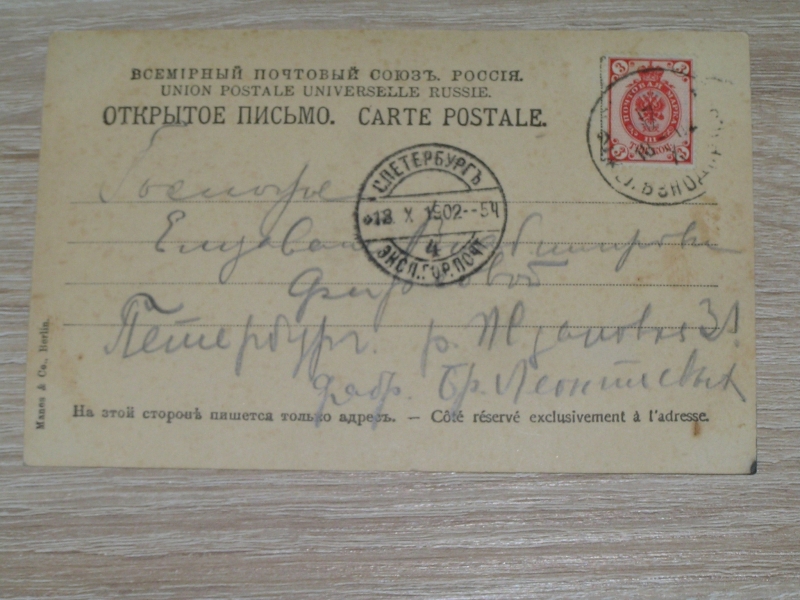 ВСЕМІРНЫЙ ПОЧТОВЫЙ СОЮЗЪ. РОССІЯ.
UNION POSTALE UNIVERSELLE RUSSIE.
ОТКРЫТОЕ ПИСЬМО. CARTE POSTALE.
3 3
ПОЧТОВАЯ МАРКА
III
3 3
С.ПЕТЕРБУРГЪ
13. X 1902
4
ЭКСП. ГОР. ПОЧТ
Госпоже
Елизавете Владимировне
Петербург. р. Ждановка 31
фабр. Бр. Леонтьевых
Manes & Co., Berlin.
На этой сторонѣ пишется только адресъ. — Côté réservé exclusivement à l'adresse.